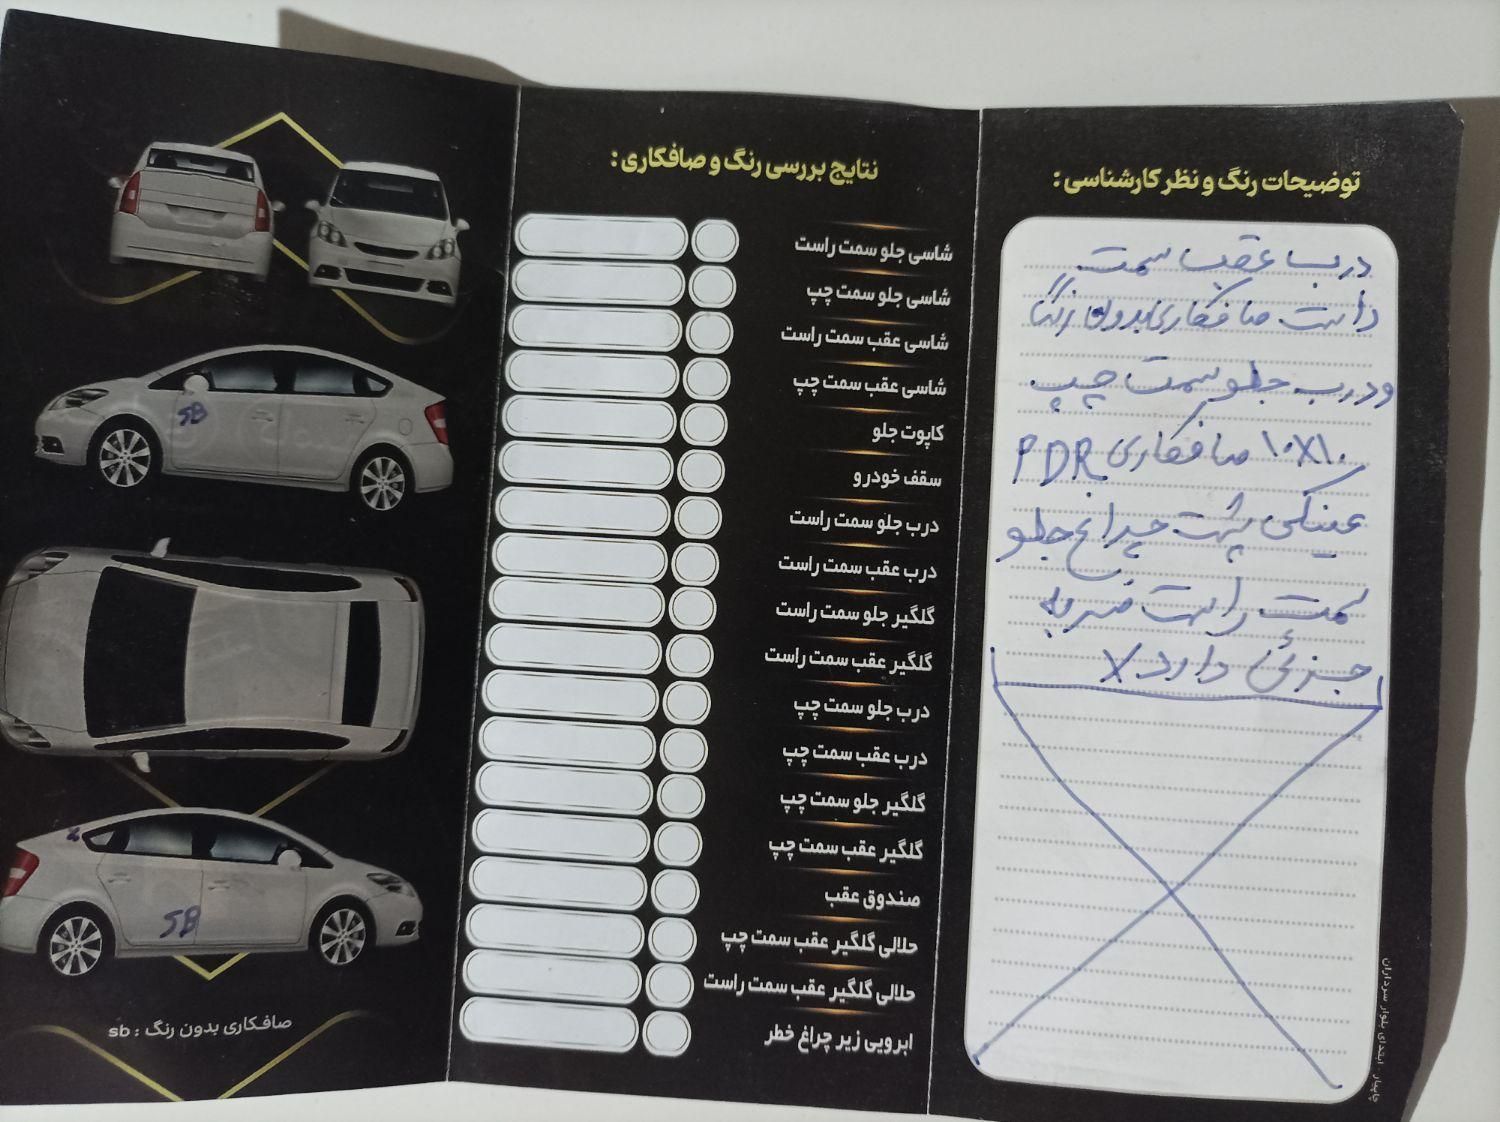 توضیحات رنگ و نظر کارشناسی :
درب عقب سمت
راست صافکاری بدون رنگ
و درب جلو سمت چپ
۱۰X۱۰ صافکاری PDR
عینکی پشت چراغ جلو
سمت راست ضربه
جزئی دارد X
چاپیار . ابتدای بلوار سرداران
نتایج بررسی رنگ و صافکاری :
شاسی جلو سمت راست
شاسی جلو سمت چپ
شاسی عقب سمت راست
شاسی عقب سمت چپ
کاپوت جلو
سقف خودرو
درب جلو سمت راست
درب عقب سمت راست
گلگیر جلو سمت راست
گلگیر عقب سمت راست
درب جلو سمت چپ
درب عقب سمت چپ
گلگیر جلو سمت چپ
گلگیر عقب سمت چپ
صندوق عقب
حلالی گلگیر عقب سمت چپ
حلالی گلگیر عقب سمت راست
ابرویی زیر چراغ خطر
SB
SB
صافکاری بدون رنگ : sb